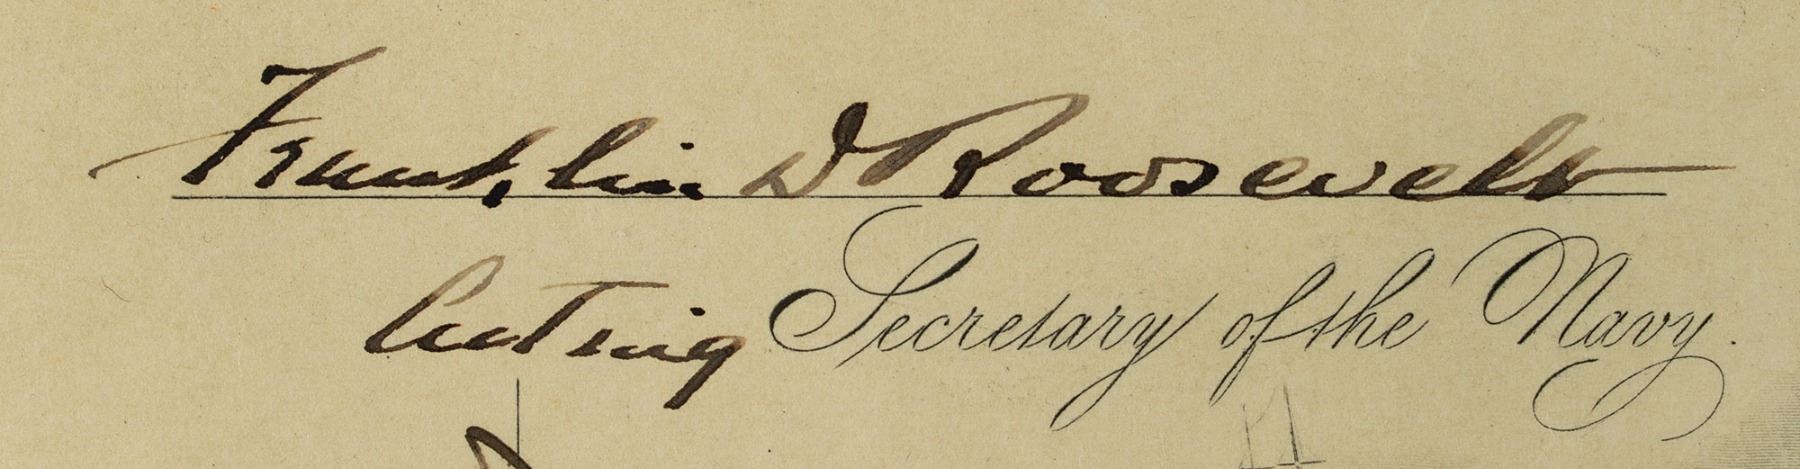 Franklin D Roosevelt
Acting Secretary of the Navy.